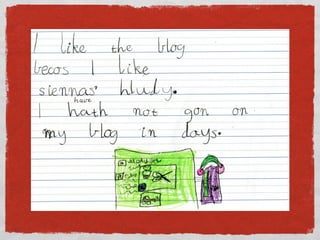 I like the blog
becos I like
siennas' hludy.
have
I hath not gon on
my blog in days.